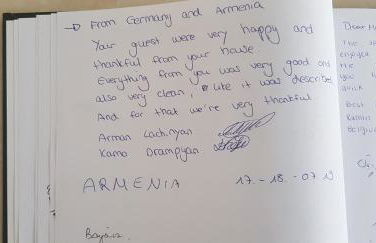 → From Germany and Armenia
Your guest were very happy and
thankful from your house.
Everything from you was very good and
also very clean, like it was described
And for that we're very thankful.
Arman
Kamo Drampyan
ARMENIA 17.-18.-07
Dear
The
enjoyed
The
you
quick
Best